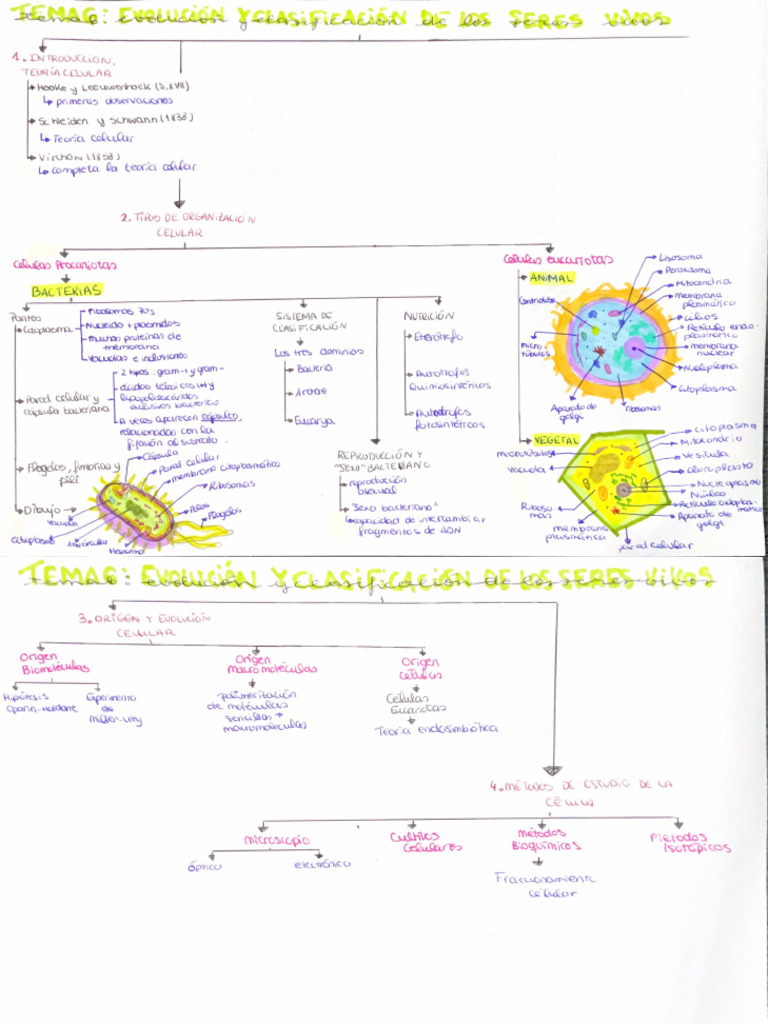 TEMA 6: EVOLUCIÓN Y clasificación DE LOS SERES VIVOS
1. INTRODUCCION.
TEORÍA CELULAR
Hooke y Leeuwenhoek (S.XVII)
primeras observaciones
Schleiden y Schwann (1838)
Teoría celular
Virchon (1858)
completa la teoría celular
2. TIPOS DE ORGANIZACIÓN
CELULAR
Células Procariotas
BACTERIAS
Partes
Citoplasma
Ribosomas 70s
Nucleoide + plasmidos
muchas proteinas de
membrana
Vacuolas e inclusiones
Pared celular y
cápsula bacteriana
2 tipos: gram + y gram-
ácidos teicoicos y
lipopolisacáridos
exclusivos bacterias
A veces aparecen cápsulas,
relacionadas con la
fijación al sustrato.
Flagelos, fimbrias y
pili
Dibujo
Cápsula
Pared celular
membrana citoplasmática
Ribosomas
Pilos
Flagelos
Vacuola
Citoplasma
Mesosoma
SISTEMA DE
CLASIFICACIÓN
Los tres dominios
Bacteria
Archae
Eucarya
NUTRICIÓN
Eterótrofo
Autótrofos
Quimiosintéticos
Autótrofos
fotosintéticos
REPRODUCCIÓN Y
"SEXO" BACTERIANO
reproducción
asexual
"Sexo bacteriano"
capacidad de intercambiar
fragmentos de ADN
Células eucariotas
ANIMAL
Lisosoma
Peroxisoma
Mitocondria
membrana
plasmática
Cilios
Retículo endo-
plasmático
membrana
nuclear
Nucleoplasma
Citoplasma
ribosomas
Aparato de
golgi
micro
túbulos
Centriolos
VEGETAL
microtúbulos
vacuola
Riboso
mas
membrana
plasmática
pared celular
citoplasma
Mitocondrio
Vesícula
cloroplasto
Nucleoplasma
Núcleo
Retículo endoplas-
mático
Aparato de
golgi
TEMA 6: EVOLUCIÓN Y clasificación DE LOS SERES VIVOS
3. ORIGEN Y EVOLUCIÓN
CELULAR
Origen
Biomoléculas
Hipótesis
Oparin-Haldane
Experimento
de
Miller-Urey
Origen
Macromoléculas
polimerización
de moléculas
sencillas →
macromoleculas
Origen
células
Células
Eucariotas
Teoría endosimbiótica
4. MÉTODOS DE ESTUDIO DE LA
CÉLULA
Microscopio
óptico
electrónico
Cultivos
Celulares
métodos
Bioquímicos
Fraccionamiento
celular
Métodos
Isotópicos